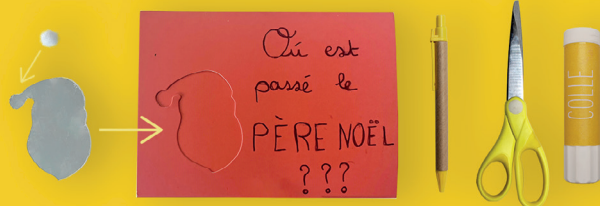 Où est
passé le
PÈRE NOËL
???
COLLE